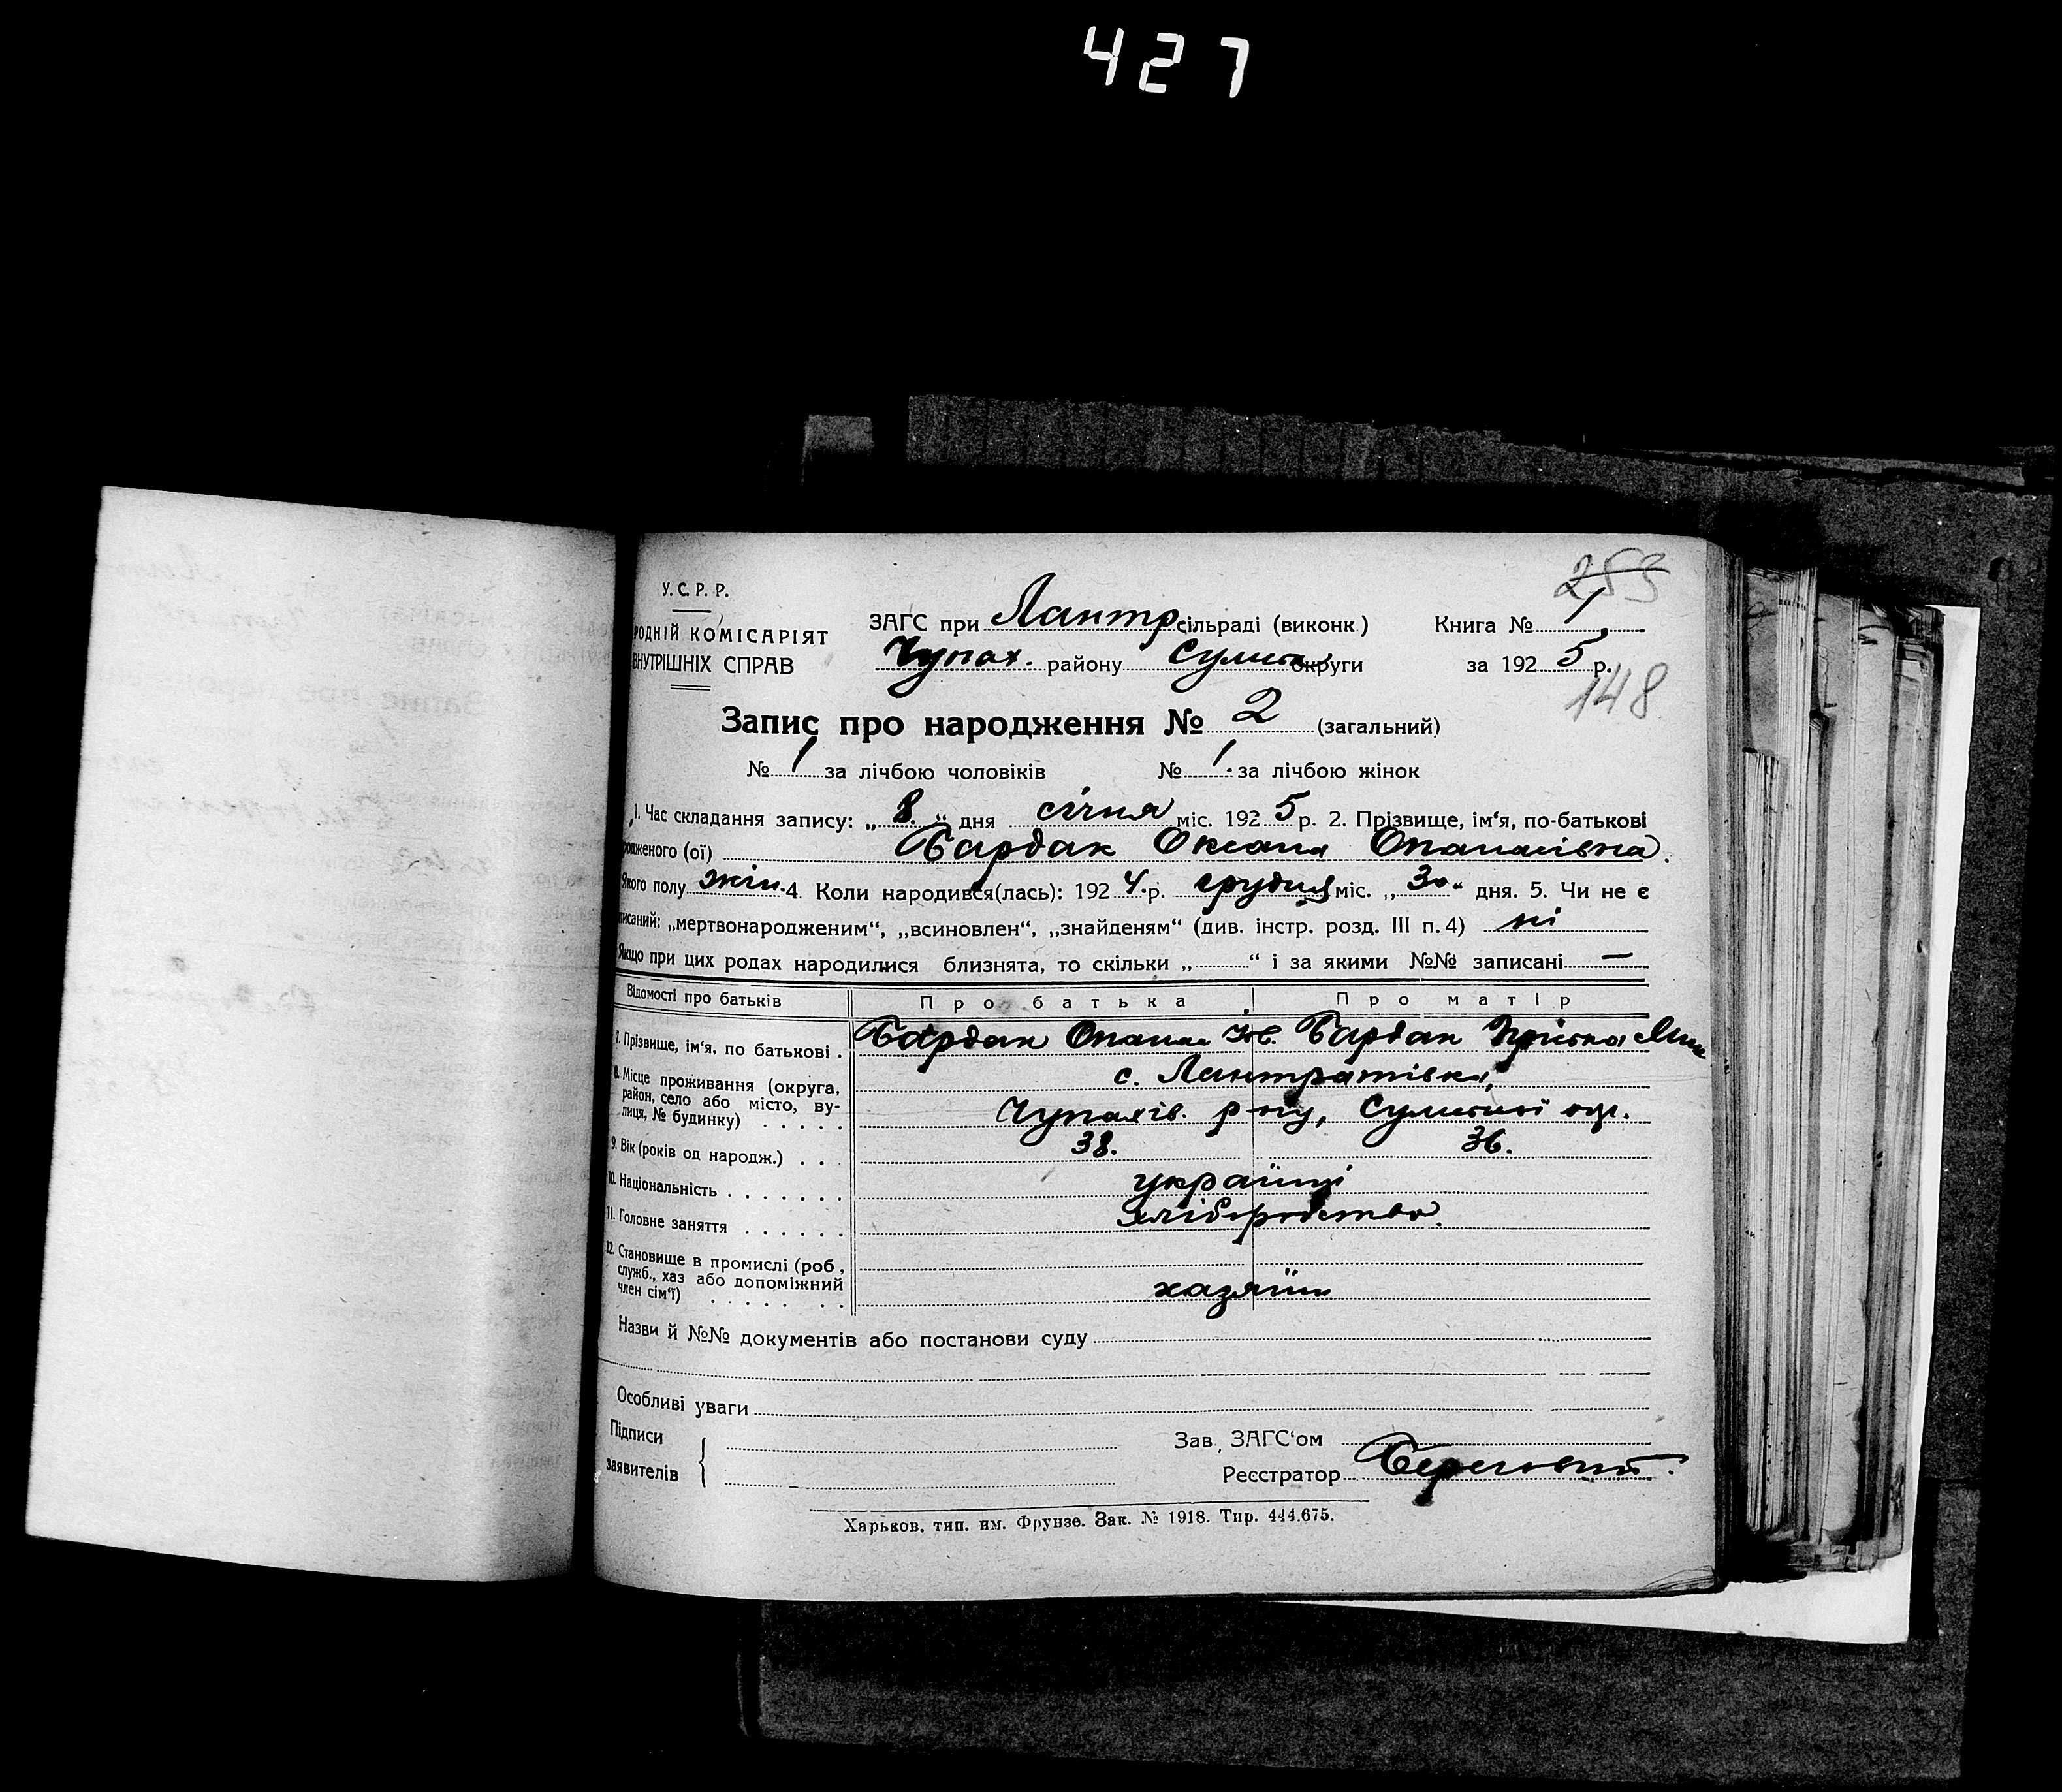 427
253
У. С. Р. Р.
РОДНІЙ КОМІСАРІЯТ
ВНУТРІШНІХ СПРАВ
ЗАГС при Лантр. сільраді (виконк.) Книга № 1
Чупах. району Сумськ. округи за 1925 р.
148
Запис про народження № 2 (загальний)
№ 1 за лічбою чоловіків № 1. за лічбою жінок
1. Час складання запису: „8.“ дня січня міс. 1925 р. 2. Прізвище, ім‘я, по-батькові
родженого (ої) Бардак Оксана Опанасівна.
Якого полу жін. 4. Коли народився(лась): 1924 р. грудня міс. „30“ дня. 5. Чи не є
писаний: „мертвонародженим“, „всиновлен“, „знайденям“ (див. інстр. розд. III п. 4) ні
Якщо при цих родах народилися близнята, то скільки „ “ і за якими №№ записані —
Відомості про батьків Про батька Про матір
7. Прізвище, ім‘я, по батькові . Бардак Опанас Бардак Пріська
8. Місце проживання (округа, район, село або місто, вулиця, № будинку) . . . . . с. Лантратівка,
Чупахів. р-ну, Сумської окр.
9. Вік (років од народж.) . . . 38. 36.
10. Національність . . . . . . . українці
11. Головне заняття . . . . . . хліборобство.
12. Становище в промислі (роб., служб., хаз або допоміжний член сім‘ї) . . . . . . . хазяїни
Назви й №№ документів або постанови суду
Особливі уваги
Підписи
заявителів
Зав. ЗАГС‘ом
Реєстратор Береговий.
Харьков, тип. им. Фрунзе. Зак. № 1918. Тир. 444.675.